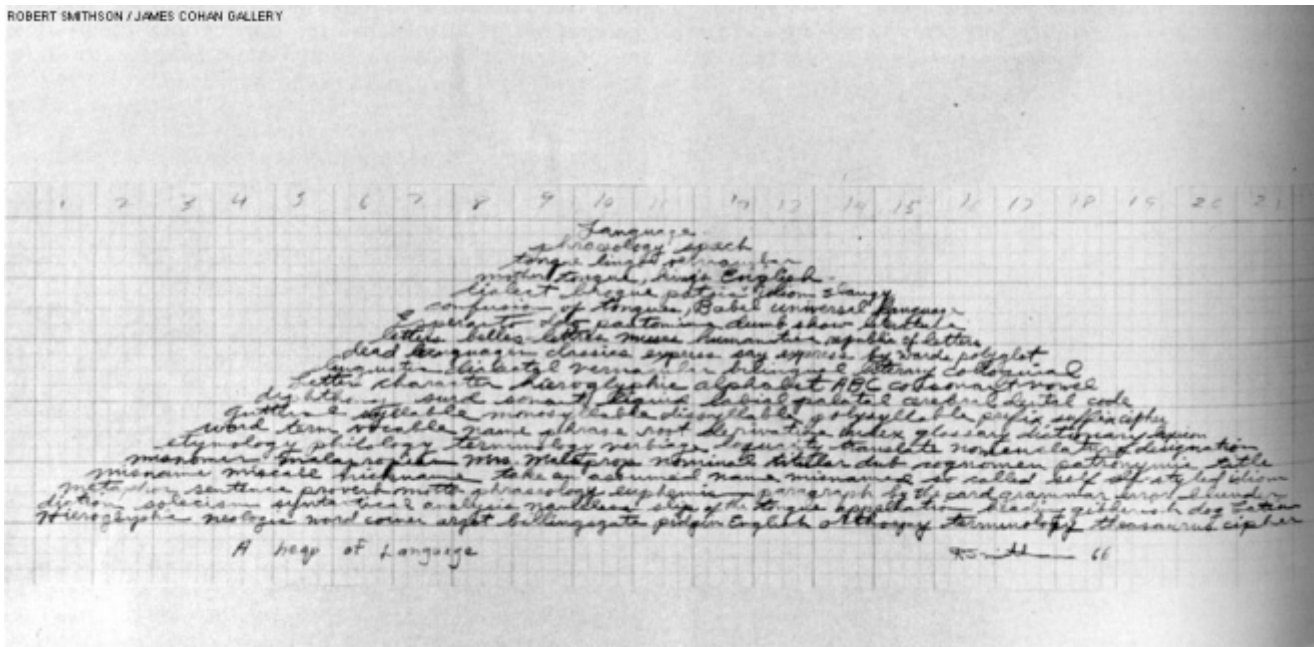 ROBERT SMITHSON / JAMES COHAN GALLERY
1 2 3 4 5 6 7 8 9 10 11 12 13 14 15 16 17 18 19 20 21
Language
phraseology speech
tongue lingo vernacular
mother tongue, King's English
dialect brogue patois idiom slangy
confusion of tongues, Babel universal language
Esperanto Ido pantomime dumb show
letters belles-lettres muses humanities republic of letters
dead languages classics express say express by words polyglot
linguistic dialectal vernacular bilingual literary colloquial
letter character hieroglyphic alphabet ABC consonant vowel
diphthong surd sonant liquid labial palatal cerebral dental code
guttural syllable monosyllable dissyllable polysyllable prefix suffix cipher
word term vocable name phrase root derivative index glossary dictionary lexicon
etymology philology terminology verbiage loquacity translate nomenclature designation
misnomer malapropism Mrs. Malaprop nominal titular dub cognomen patronymic title
misname miscall nickname take an assumed name misnamed so called self styled idiom
metaphor sentence proverb motto phraseology euphemism paragraph by the card grammar error blunder
diction solecism syntactical analysis slip of the tongue appellation heading gibberish dog Latin
Hieroglyphic neologism word coiner argot billingsgate pidgin English orthoepy terminology thesaurus cipher
A heap of Language
R Smithson 66